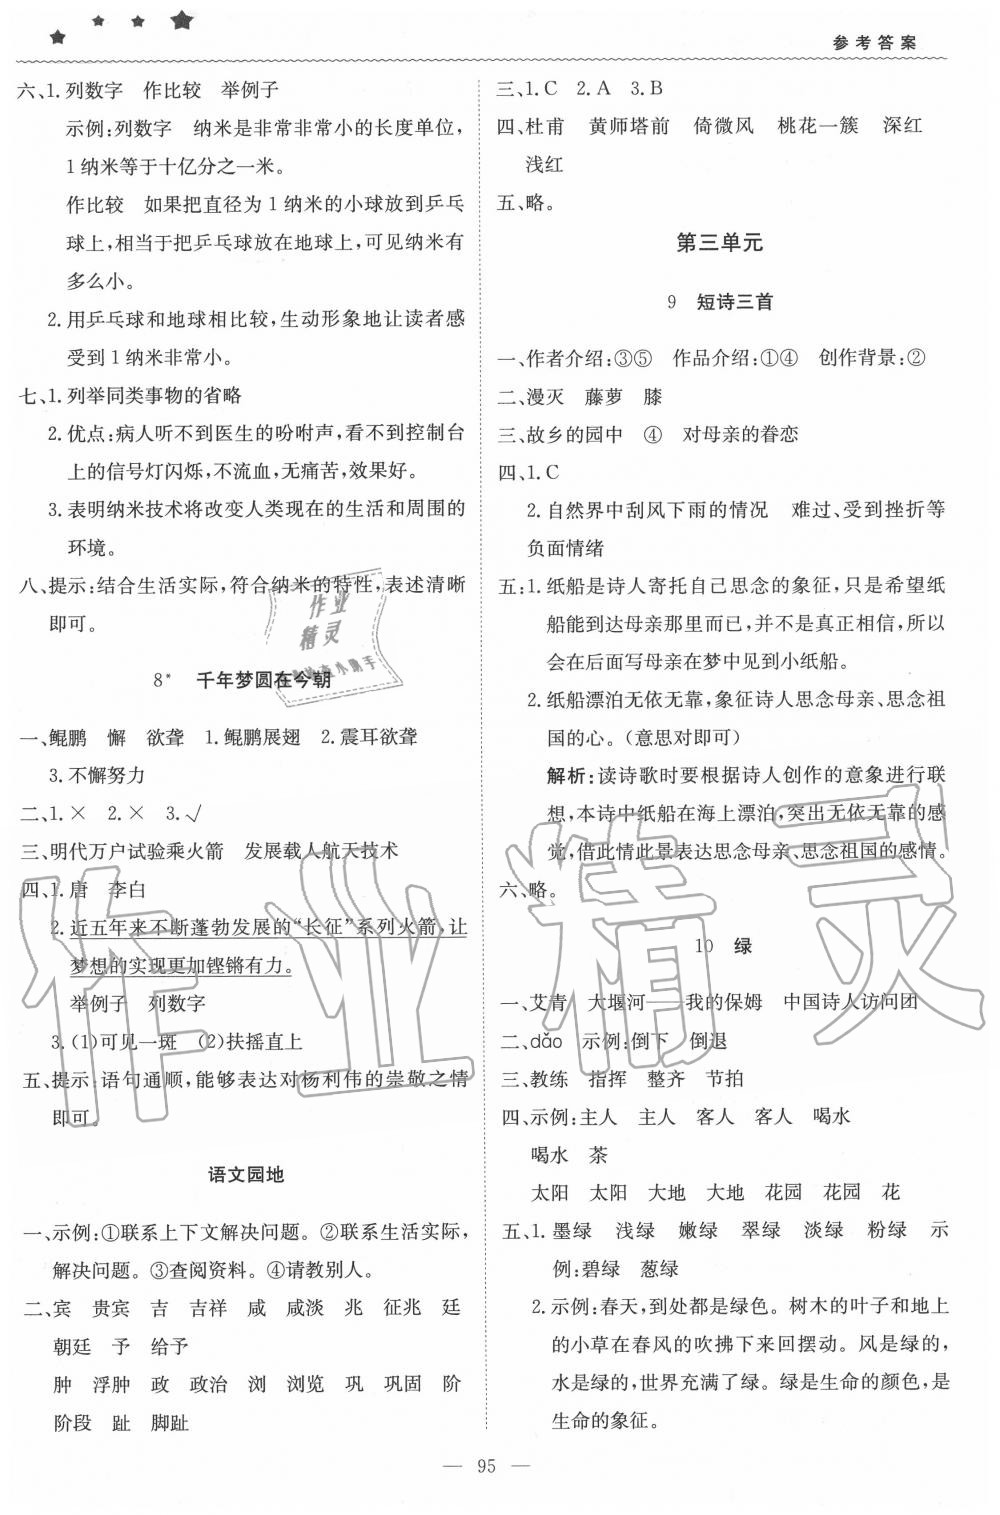 参考答案
六、1. 列数字 作比较 举例子
示例:列数字 纳米是非常非常小的长度单位,
1 纳米等于十亿分之一米。
作比较 如果把直径为 1 纳米的小球放到乒乓
球上,相当于把乒乓球放在地球上,可见纳米有
多么小。
2. 用乒乓球和地球相比较,生动形象地让读者感
受到 1 纳米非常小。
七、1. 列举同类事物的省略
2. 优点:病人听不到医生的吩咐声,看不到控制台
上的信号灯闪烁,不流血,无痛苦,效果好。
3. 表明纳米技术将改变人类现在的生活和周围的
环境。
八、提示:结合生活实际,符合纳米的特性,表述清晰
即可。
8* 千年梦圆在今朝
一、鲲鹏 懈 欲聋 1. 鲲鹏展翅 2. 震耳欲聋
3. 不懈努力
二、1. × 2. × 3. √
三、明代万户试验乘火箭 发展载人航天技术
四、1. 唐 李白
2. 近五年来不断蓬勃发展的“长征”系列火箭,让
梦想的实现更加铿锵有力。
举例子 列数字
3. (1)可见一斑 (2)扶摇直上
五、提示:语句通顺,能够表达对杨利伟的崇敬之情
即可。
语文园地
一、示例:①联系上下文解决问题。②联系生活实际,
解决问题。③查阅资料。④请教别人。
二、宾 贵宾 吉 吉祥 咸 咸淡 兆 征兆 廷
朝廷 予 给予
肿 浮肿 政 政治 浏 浏览 巩 巩固 阶
阶段 趾 脚趾
三、1. C 2. A 3. B
四、杜甫 黄师塔前 倚微风 桃花一簇 深红
浅红
五、略。
第三单元
9 短诗三首
一、作者介绍:③⑤ 作品介绍:①④ 创作背景:②
二、漫灭 藤萝 膝
三、故乡的园中 ④ 对母亲的眷恋
四、1. C
2. 自然界中刮风下雨的情况 难过、受到挫折等
负面情绪
五:1. 纸船是诗人寄托自己思念的象征,只是希望纸
船能到达母亲那里而已,并不是真正相信,所以
会在后面写母亲在梦中见到小纸船。
2. 纸船漂泊无依无靠,象征诗人思念母亲、思念祖
国的心。(意思对即可)
解析:读诗歌时要根据诗人创作的意象进行联
想,本诗中纸船在海上漂泊,突出无依无靠的感
觉,借此情此景表达思念母亲、思念祖国的感情。
六、略。
10 绿
一、艾青 大堰河——我的保姆 中国诗人访问团
二、dǎo 示例:倒下 倒退
三、教练 指挥 整齐 节拍
四、示例:主人 主人 客人 客人 喝水
喝水 茶
太阳 太阳 大地 大地 花园 花园 花
五、1. 墨绿 浅绿 嫩绿 翠绿 淡绿 粉绿 示
例:碧绿 葱绿
2. 示例:春天,到处都是绿色。树木的叶子和地上
的小草在春风的吹拂下来回摆动。风是绿的,
水是绿的,世界充满了绿。绿是生命的颜色,是
生命的象征。
— 95 —
作业
精灵
作业精灵